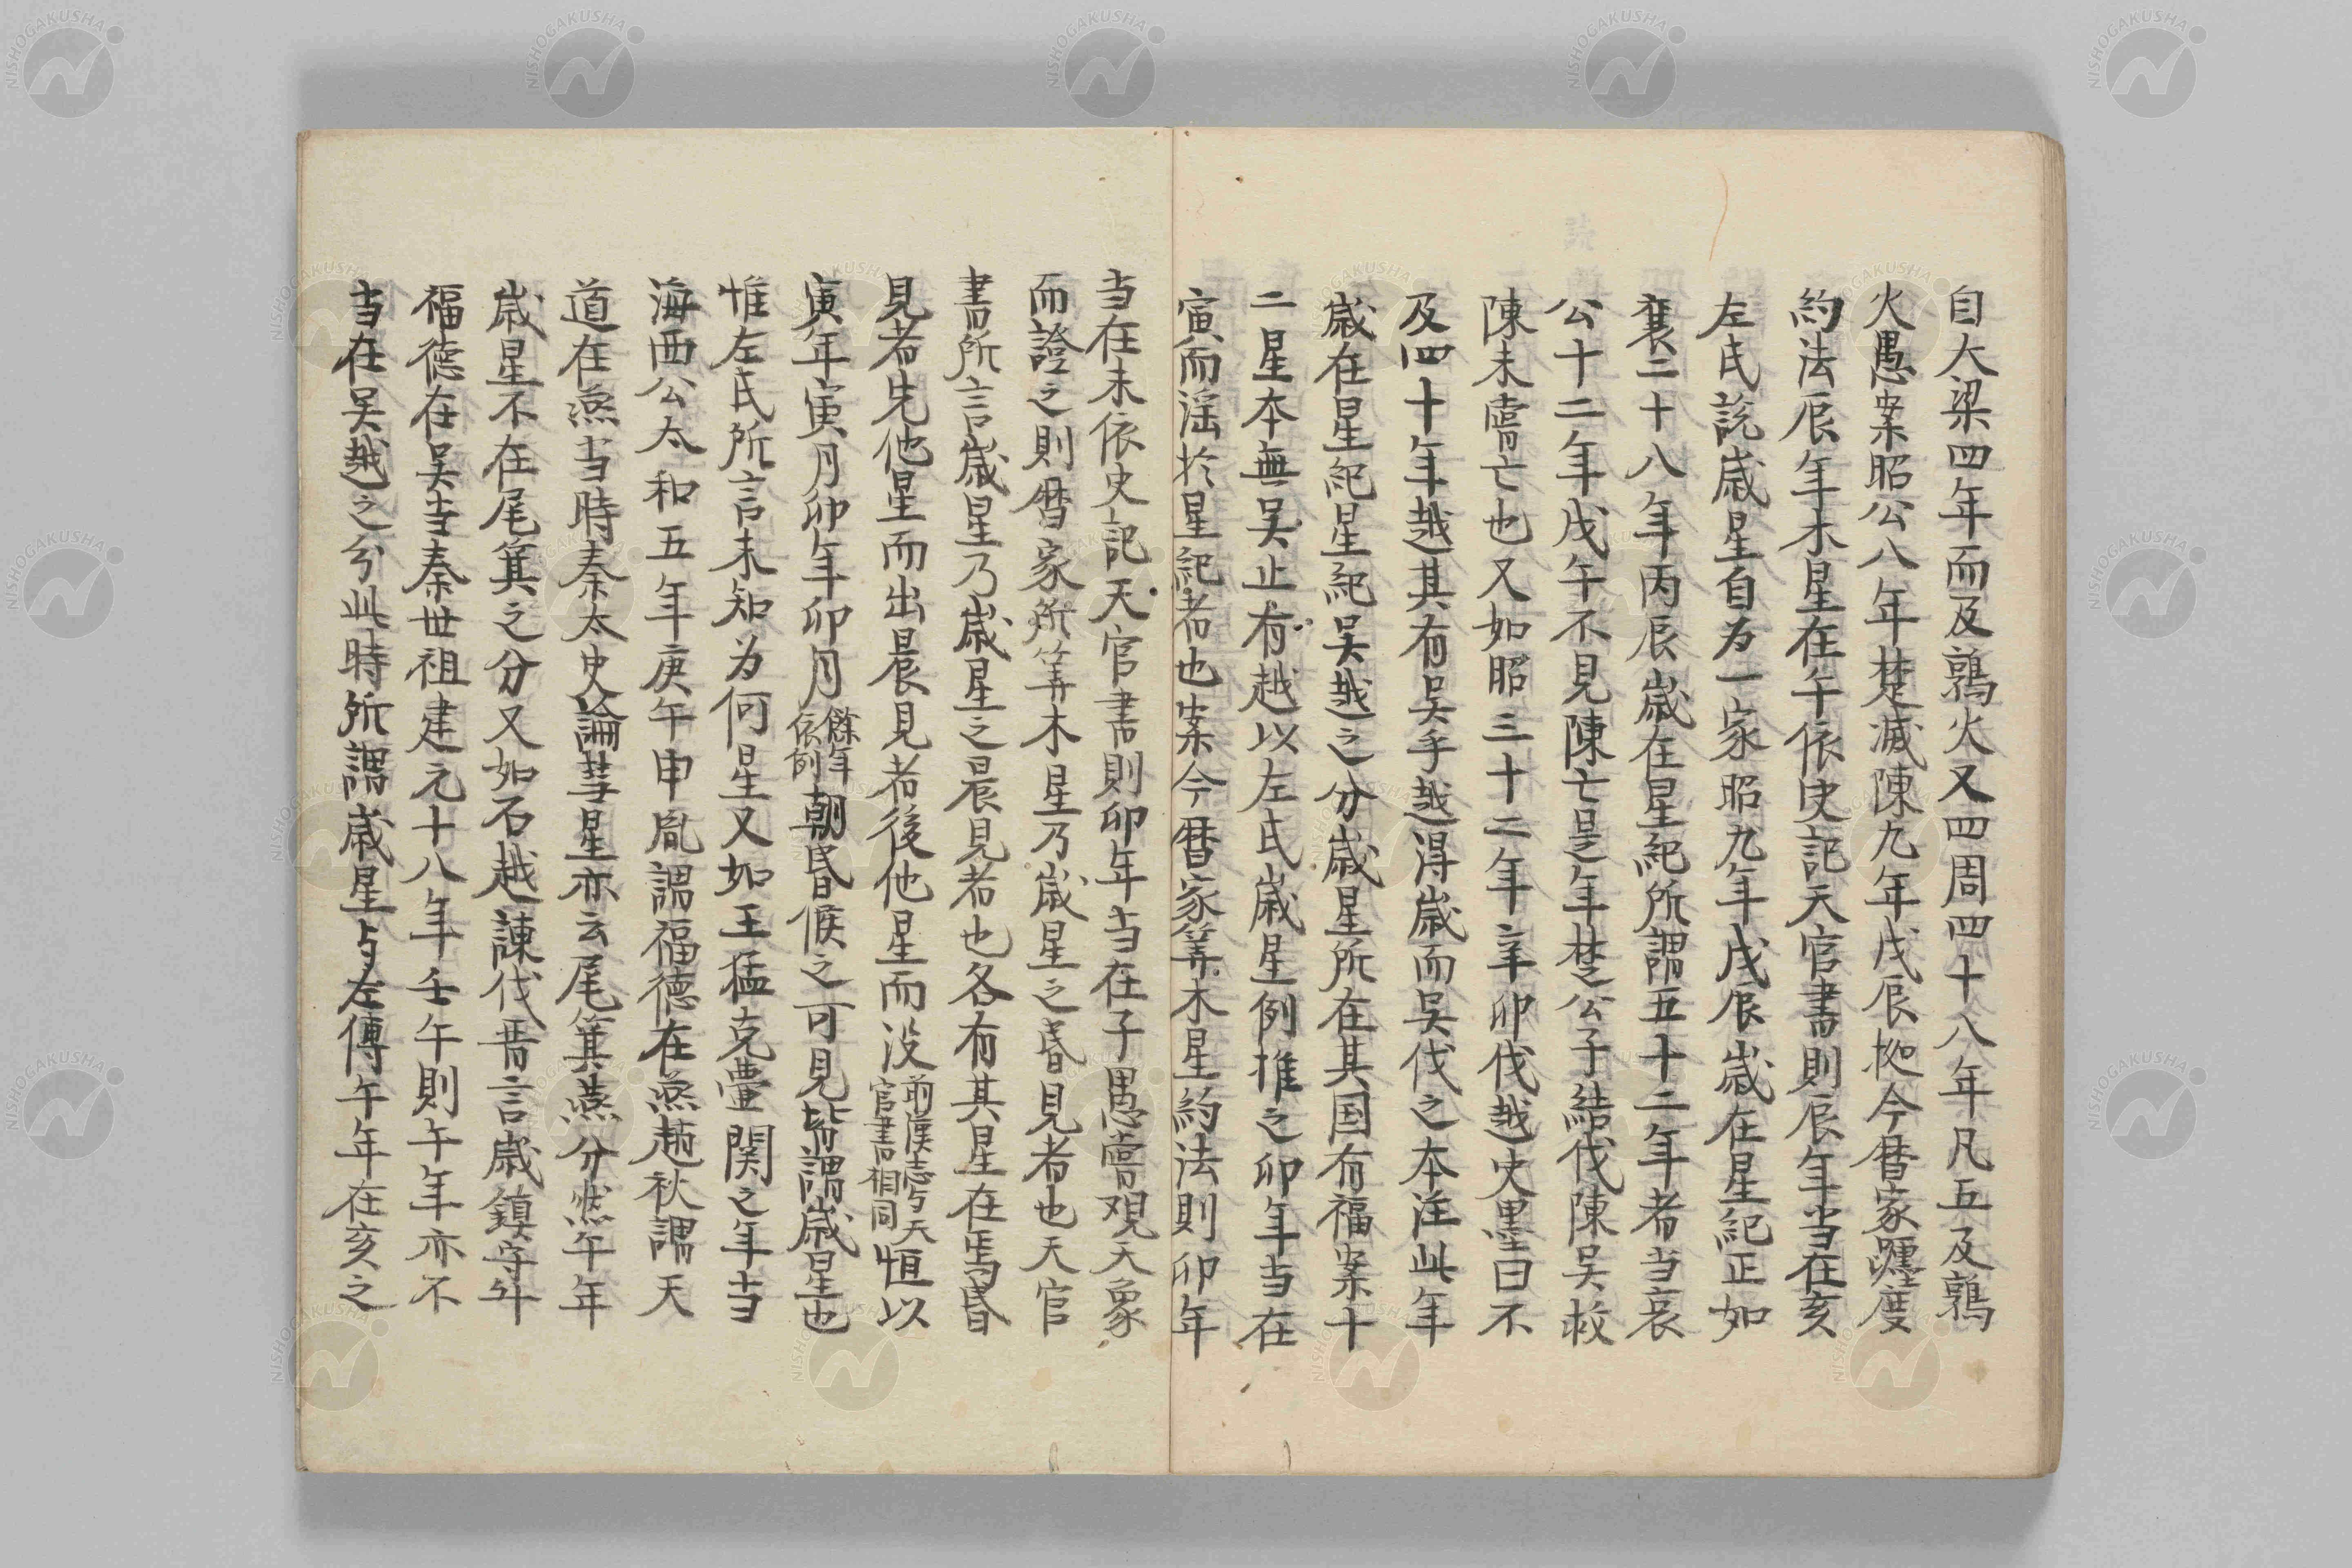 自大梁四年而及鶉火又四周四十八年凡五及鶉
火愚案昭公八年楚滅陳九年戊辰拠今暦家躔度
約法辰年木星在午依史記天官書則辰年当在亥
左氏説歳星自為一家昭九年戊辰歳在星紀正如
襄二十八年丙辰歳在星紀所謂五十二年者当哀
公十二年戊午不見陳亡是年楚公子結伐陳呉救
陳未嘗亡也又如昭三十二年辛卯伐越史墨曰不
及四十年越其有呉乎越得歳而呉伐之本注此年
歳在星紀星紀呉越之分歳星所在其国有福案十
二星本無呉止有越以左氏歳星例推之卯年当在
寅而淫於星紀者也案今暦家筭木星約法則卯年
当在未依史記天官書則卯年当在子愚嘗観天象
而證之則暦家所筭木星乃歳星之昏見者也天官
書所言歳星乃歳星之晨見者也各有其星在焉昏
見者先他星而出晨見者後他星而没前漢志与天官書相同恒以
寅年寅月卯年卯月餘年依例朝昏候之可見皆謂歳星也
惟左氏所言未知為何星又如王猛克壷関之年当
海西公太和五年庚午申胤謂福徳在燕趙秋謂天
道在燕当時秦太史論彗星亦云尾箕燕分然午年
歳星不在尾箕之分又如石越諫伐晋言歳鎮守斗
福徳在呉当秦世祖建元十八年壬午則午年亦不
当在呉越之分此時所謂歳星与左傳午年在亥之